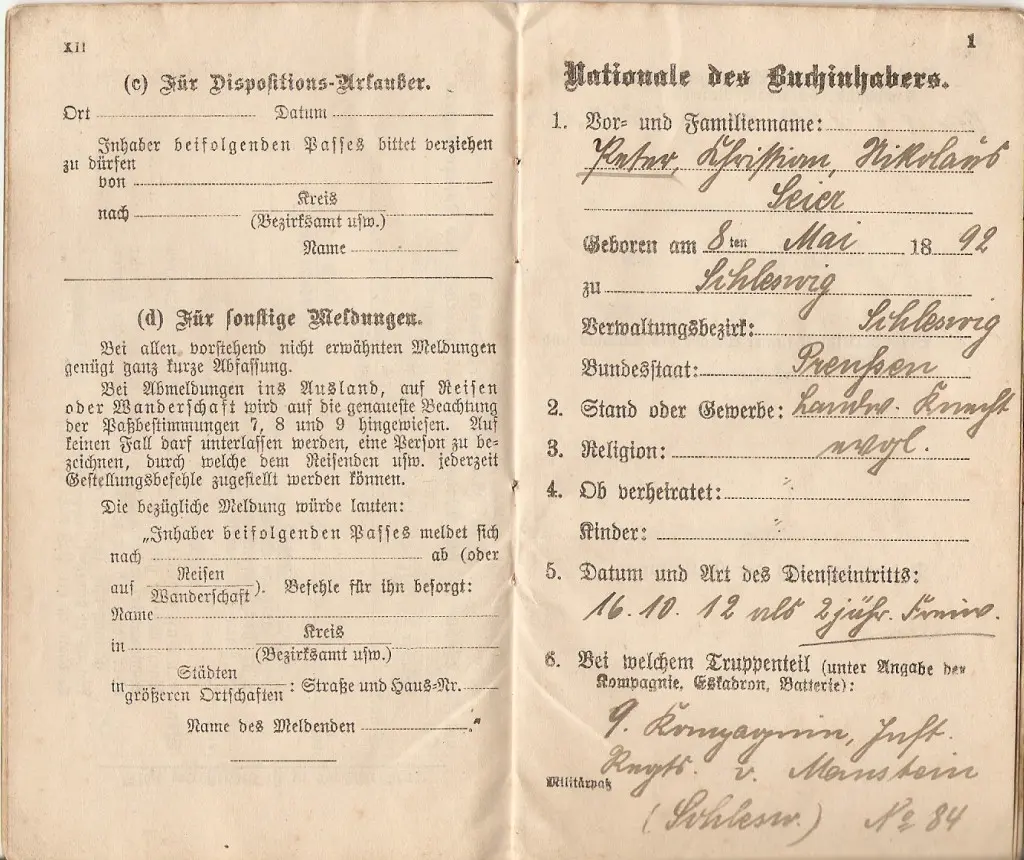 XII
(c) Für Dispositions-Urlauber.
Ort Datum
Inhaber beifolgenden Passes bittet verziehen
zu dürfen
von
nach Kreis
(Bezirksamt usw.)
Name
(d) Für sonstige Meldungen.
Bei allen vorstehend nicht erwähnten Meldungen
genügt ganz kurze Abfassung.
Bei Abmeldungen ins Ausland, auf Reisen
oder Wanderschaft wird auf die genaueste Beachtung
der Paßbestimmungen 7, 8 und 9 hingewiesen. Auf
keinen Fall darf unterlassen werden, eine Person zu be-
zeichnen, durch welche dem Reisenden usw. jederzeit
Gestellungsbefehle zugestellt werden können.
Die bezügliche Meldung würde lauten:
„Inhaber beifolgenden Passes meldet sich
nach ab (oder
auf Reisen
Wanderschaft). Befehle für ihn besorgt:
Name
in Kreis
(Bezirksamt usw.)
in Städten
größeren Ortschaften: Straße und Haus-Nr.
Name des Meldenden "
1
Nationale des Buchinhabers.
1. Vor- und Familienname:
Peter, Christian, Nikolaus
Seier
Geboren am 8ten Mai 1892
zu Schleswig
Verwaltungsbezirk: Schleswig
Bundesstaat: Preußen
2. Stand oder Gewerbe: Landw. Knecht
3. Religion: evgl.
4. Ob verheiratet: ⁒
Kinder: ⁒
5. Datum und Art des Diensteintritts:
16.10.12 als 2jähr. Freiw.
6. Bei welchem Truppenteil (unter Angabe der
Kompagnie, Eskadron, Batterie):
9. Kompagnie, Inft.
Regts. v. Manstein
Militärpaß
(Schlesw.) No 84